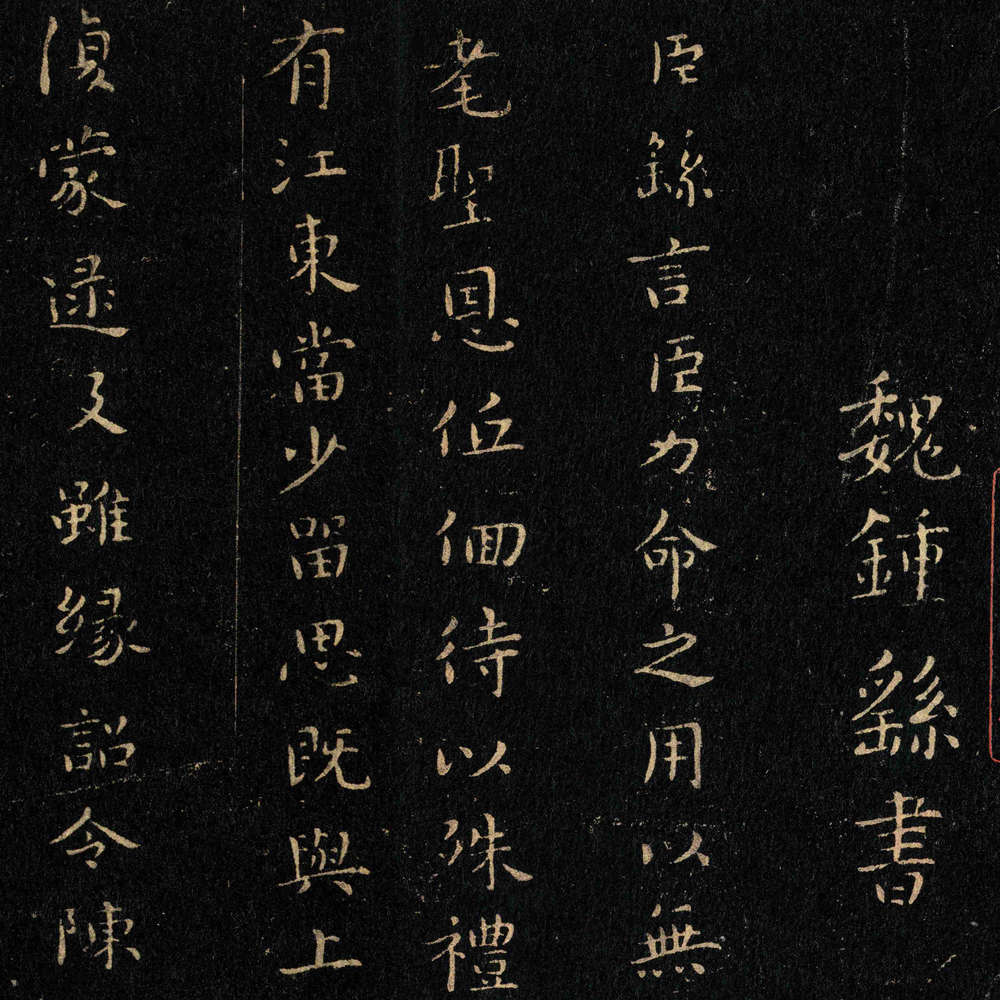 魏鍾繇書
臣繇言臣力命之用以無
耄聖恩低佪待以殊禮
有江東當少留思既與上
偵蒙逮及雖緣詔令陳